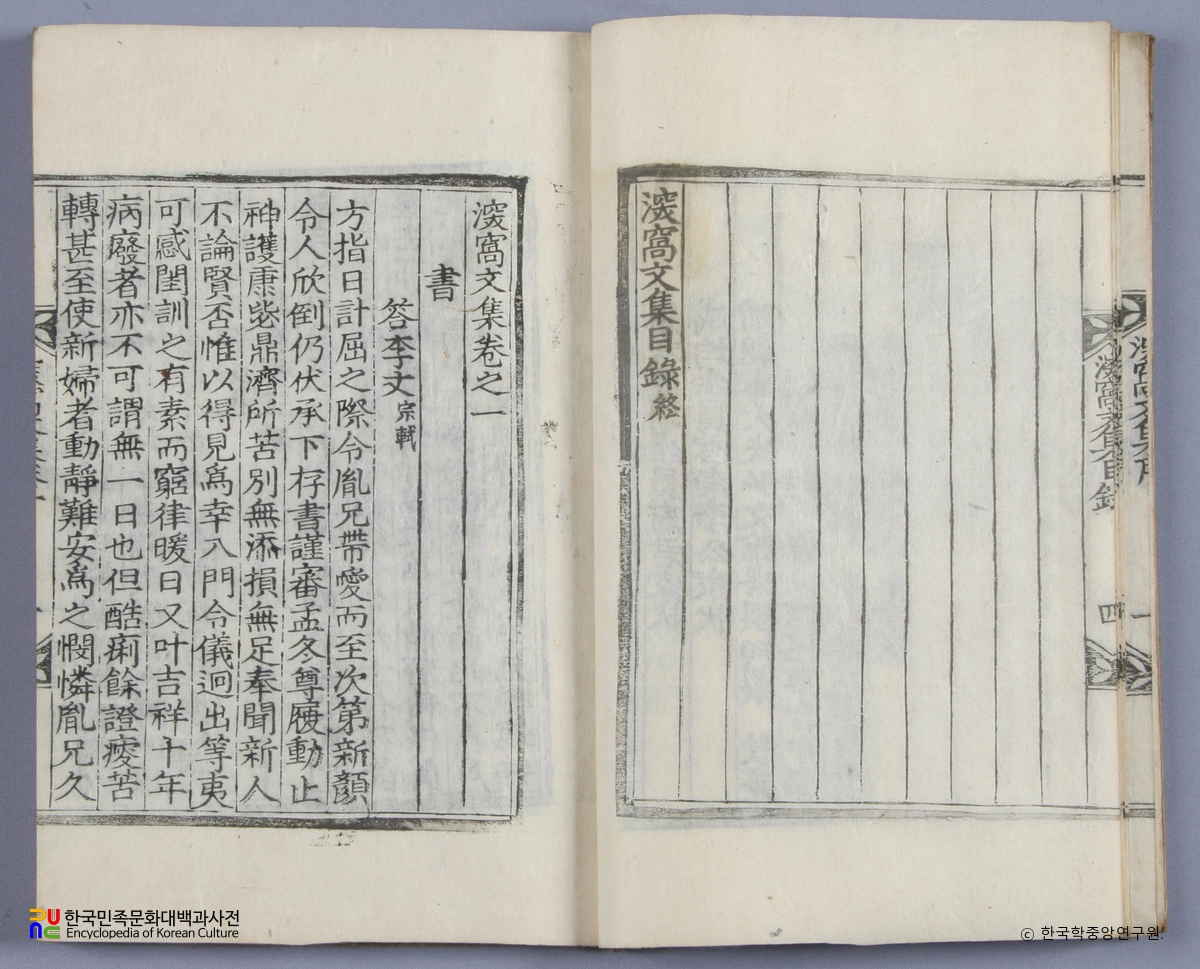 濲窩文集目錄終
濲窩文集目錄
四
一
濲窩文集卷之一
書
答李丈宗軾
方指日計屈之際令胤兄帶愛而至次第新顔
令人欣倒仍伏承下存書謹審孟冬尊履動止
神護康毖鼎濟所苦別無添損無足奉聞新人
不論賢否惟以得見爲幸入門令儀迥出等夷
可感閨訓之有素而窮律暖日又叶吉祥十年
病廢者亦不可謂無一日也但酷痢餘證疲苦
轉甚至使新婦者動靜難安爲之憫憐胤兄久
한국민족문화대백과사전
Encyclopedia of Korean Culture
© 한국학중앙연구원